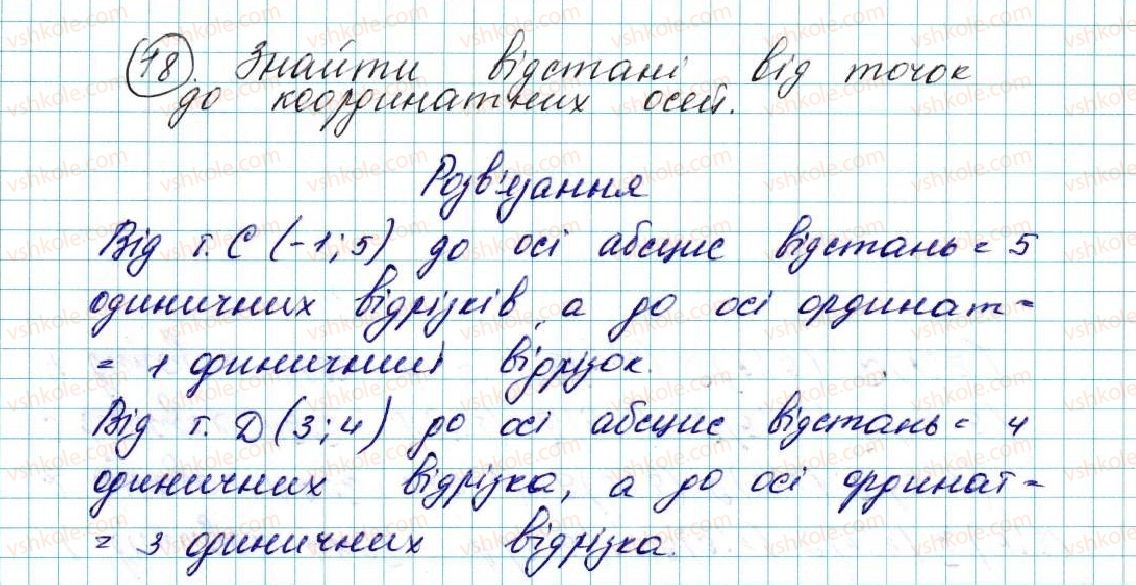 18. Знайти відстані від точок
до координатних осей.
Розв'язання
Від т. С (-1; 5) до осі абсцис відстань = 5
одиничних відрізків, а до осі ординат =
= 1 одиничний відрізок.
Від т. D (3; 4) до осі абсцис відстань = 4
одиничних відрізка, а до осі ординат =
= 3 одиничних відрізка.